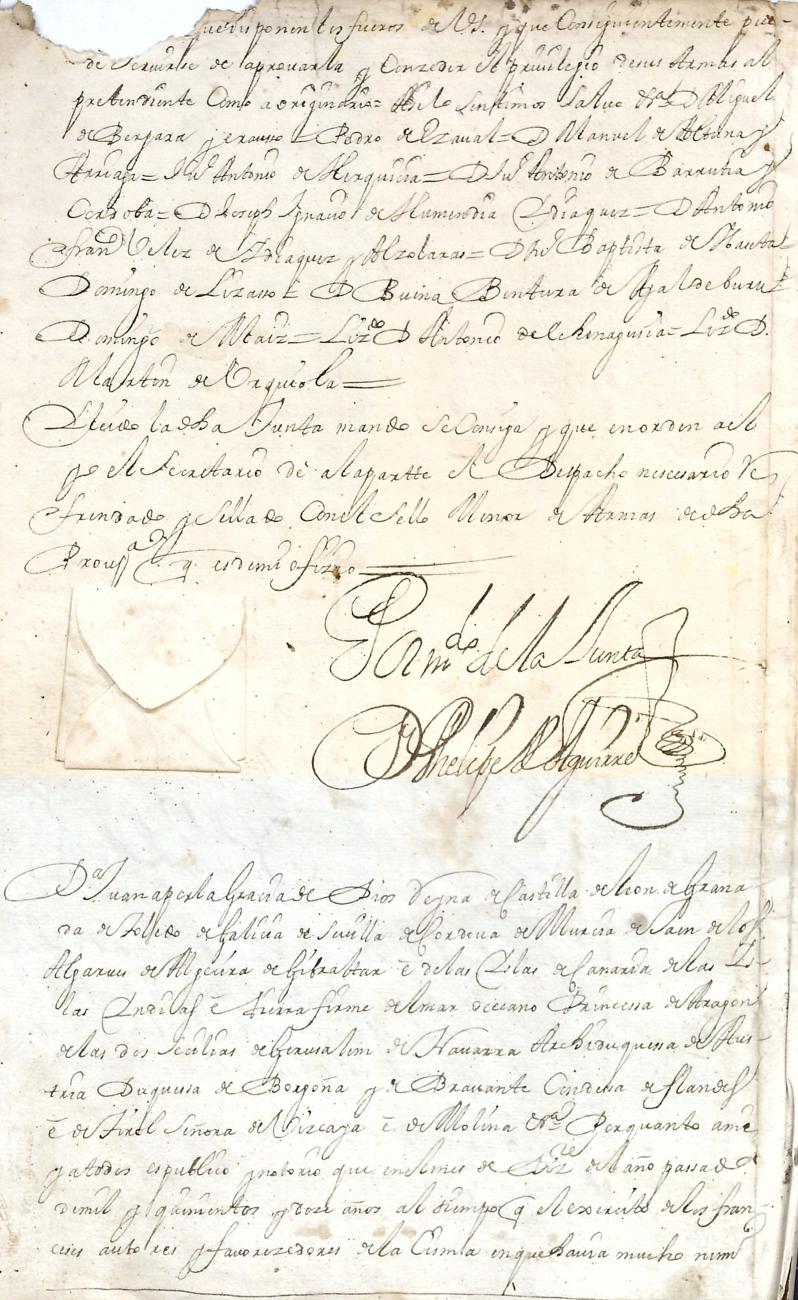 que disponen los fueros de V.S. y que Consiguientemente pue-
de servirse de aprovarla y Conzeder el privilegio de sus Armas al
pretendiente Como a originario = Assi lo sentimos salvo &ra. D Miguel
de Bergara y = Pedro de Ezaval = D Manuel de Altuna y
Arriaga = Ju.o Antonio de = D Ju.o Antonio de Barrutia y
Cordoba = D Joseph Ignacio de Ydiaquez = D Antonio
Fran.co Velez de Ydiaquez y Alzolaras = D Ju.o Baptista de
Domingo de Lizasso = D Buena Bentura de
Domingo de Maiz = Liz.do D Antonio de = Liz.do D.
Martin de Urquiola =
Y leido la dha Junta mando se Consiga y que en orden a el
yo el secretario dè a la partte el Despacho nescesario Re
frendado y sellado Con el sello Menor de Armas de dha
Prov.a q. es de mi ofizio
Por m.do de la Junta
D Phelipe de Aguirre
D.a Juana por la Gracia de Dios Reyna de Castilla de leon de Grana
da de Toledo de Galicia de Sevilla de Cordova de Murcia de Jaen de los
Algarves de Algecira de Gibraltar è de las Yslas de Canaria de las Ys-
las Yndias è tierra firme del mar occeano Princessa de Aragon
de las dos secilias de Gerusalem de Navarra Archiduquessa de Aus-
tria Duquesa de Borgoña y de Bravante Condesa de flandes
è de Tirol señora de Vizcaya è de Molina &ra. Por quanto a mi
y a todos es publico y notorio que en el mes de Diz.re del año passado
de mil y quinientos y doze años al tiempo q el exercito de los fran-
ceses autores y favorezedores de la Cisma en que havia mucho num